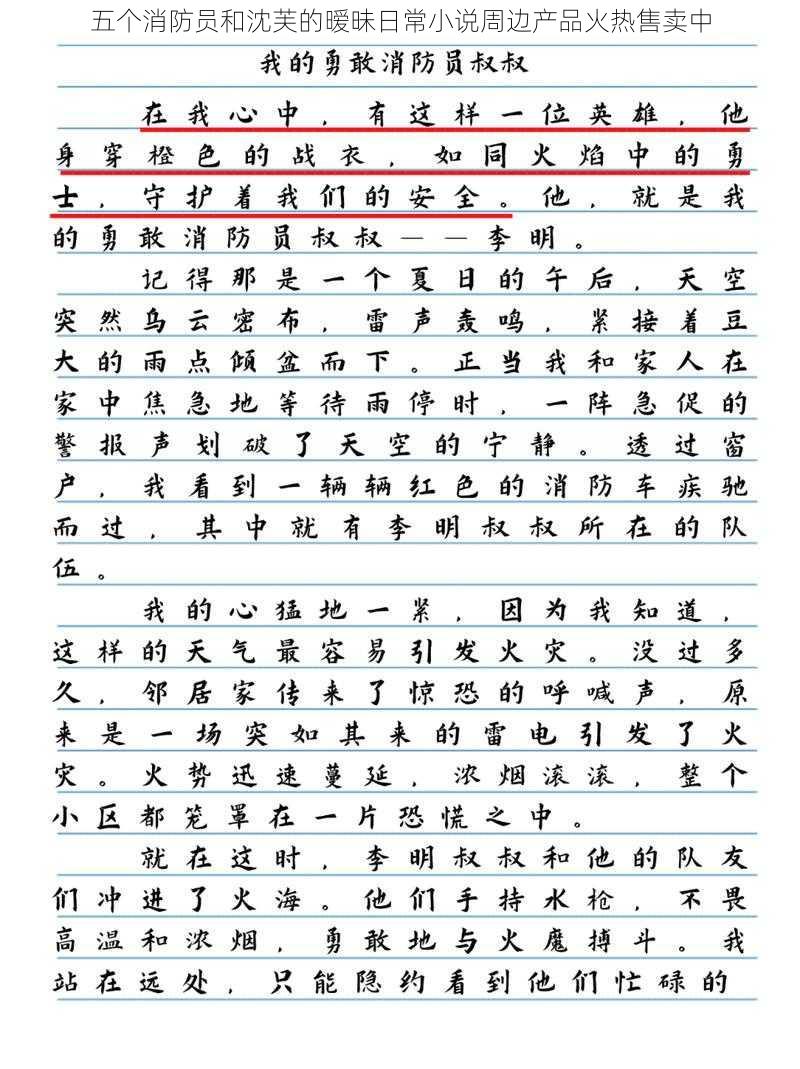 五个消防员和沈芙的暧昧日常小说周边产品火热售卖中
我的勇敢消防员叔叔
在我心中，有这样一位英雄，他
身穿橙色的战衣，如同火焰中的勇
士，守护着我们的安全。他，就是我
的勇敢消防员叔叔——李明。
记得那是一个夏日的午后，天空
突然乌云密布，雷声轰鸣，紧接着豆
大的雨点倾盆而下。正当我和家人在
家中焦急地等待雨停时，一阵急促的
警报声划破了天空的宁静。透过窗
户，我看到一辆辆红色的消防车疾驰
而过，其中就有李明叔叔所在的队
伍。
我的心猛地一紧，因为我知道，
这样的天气最容易引发火灾。没过多
久，邻居家传来了惊恐的呼喊声，原
来是一场突如其来的雷电引发了火
灾。火势迅速蔓延，浓烟滚滚，整个
小区都笼罩在一片恐慌之中。
就在这时，李明叔叔和他的队友
们冲进了火海。他们手持水枪，不畏
高温和浓烟，勇敢地与火魔搏斗。我
站在远处，只能隐约看到他们忙碌的